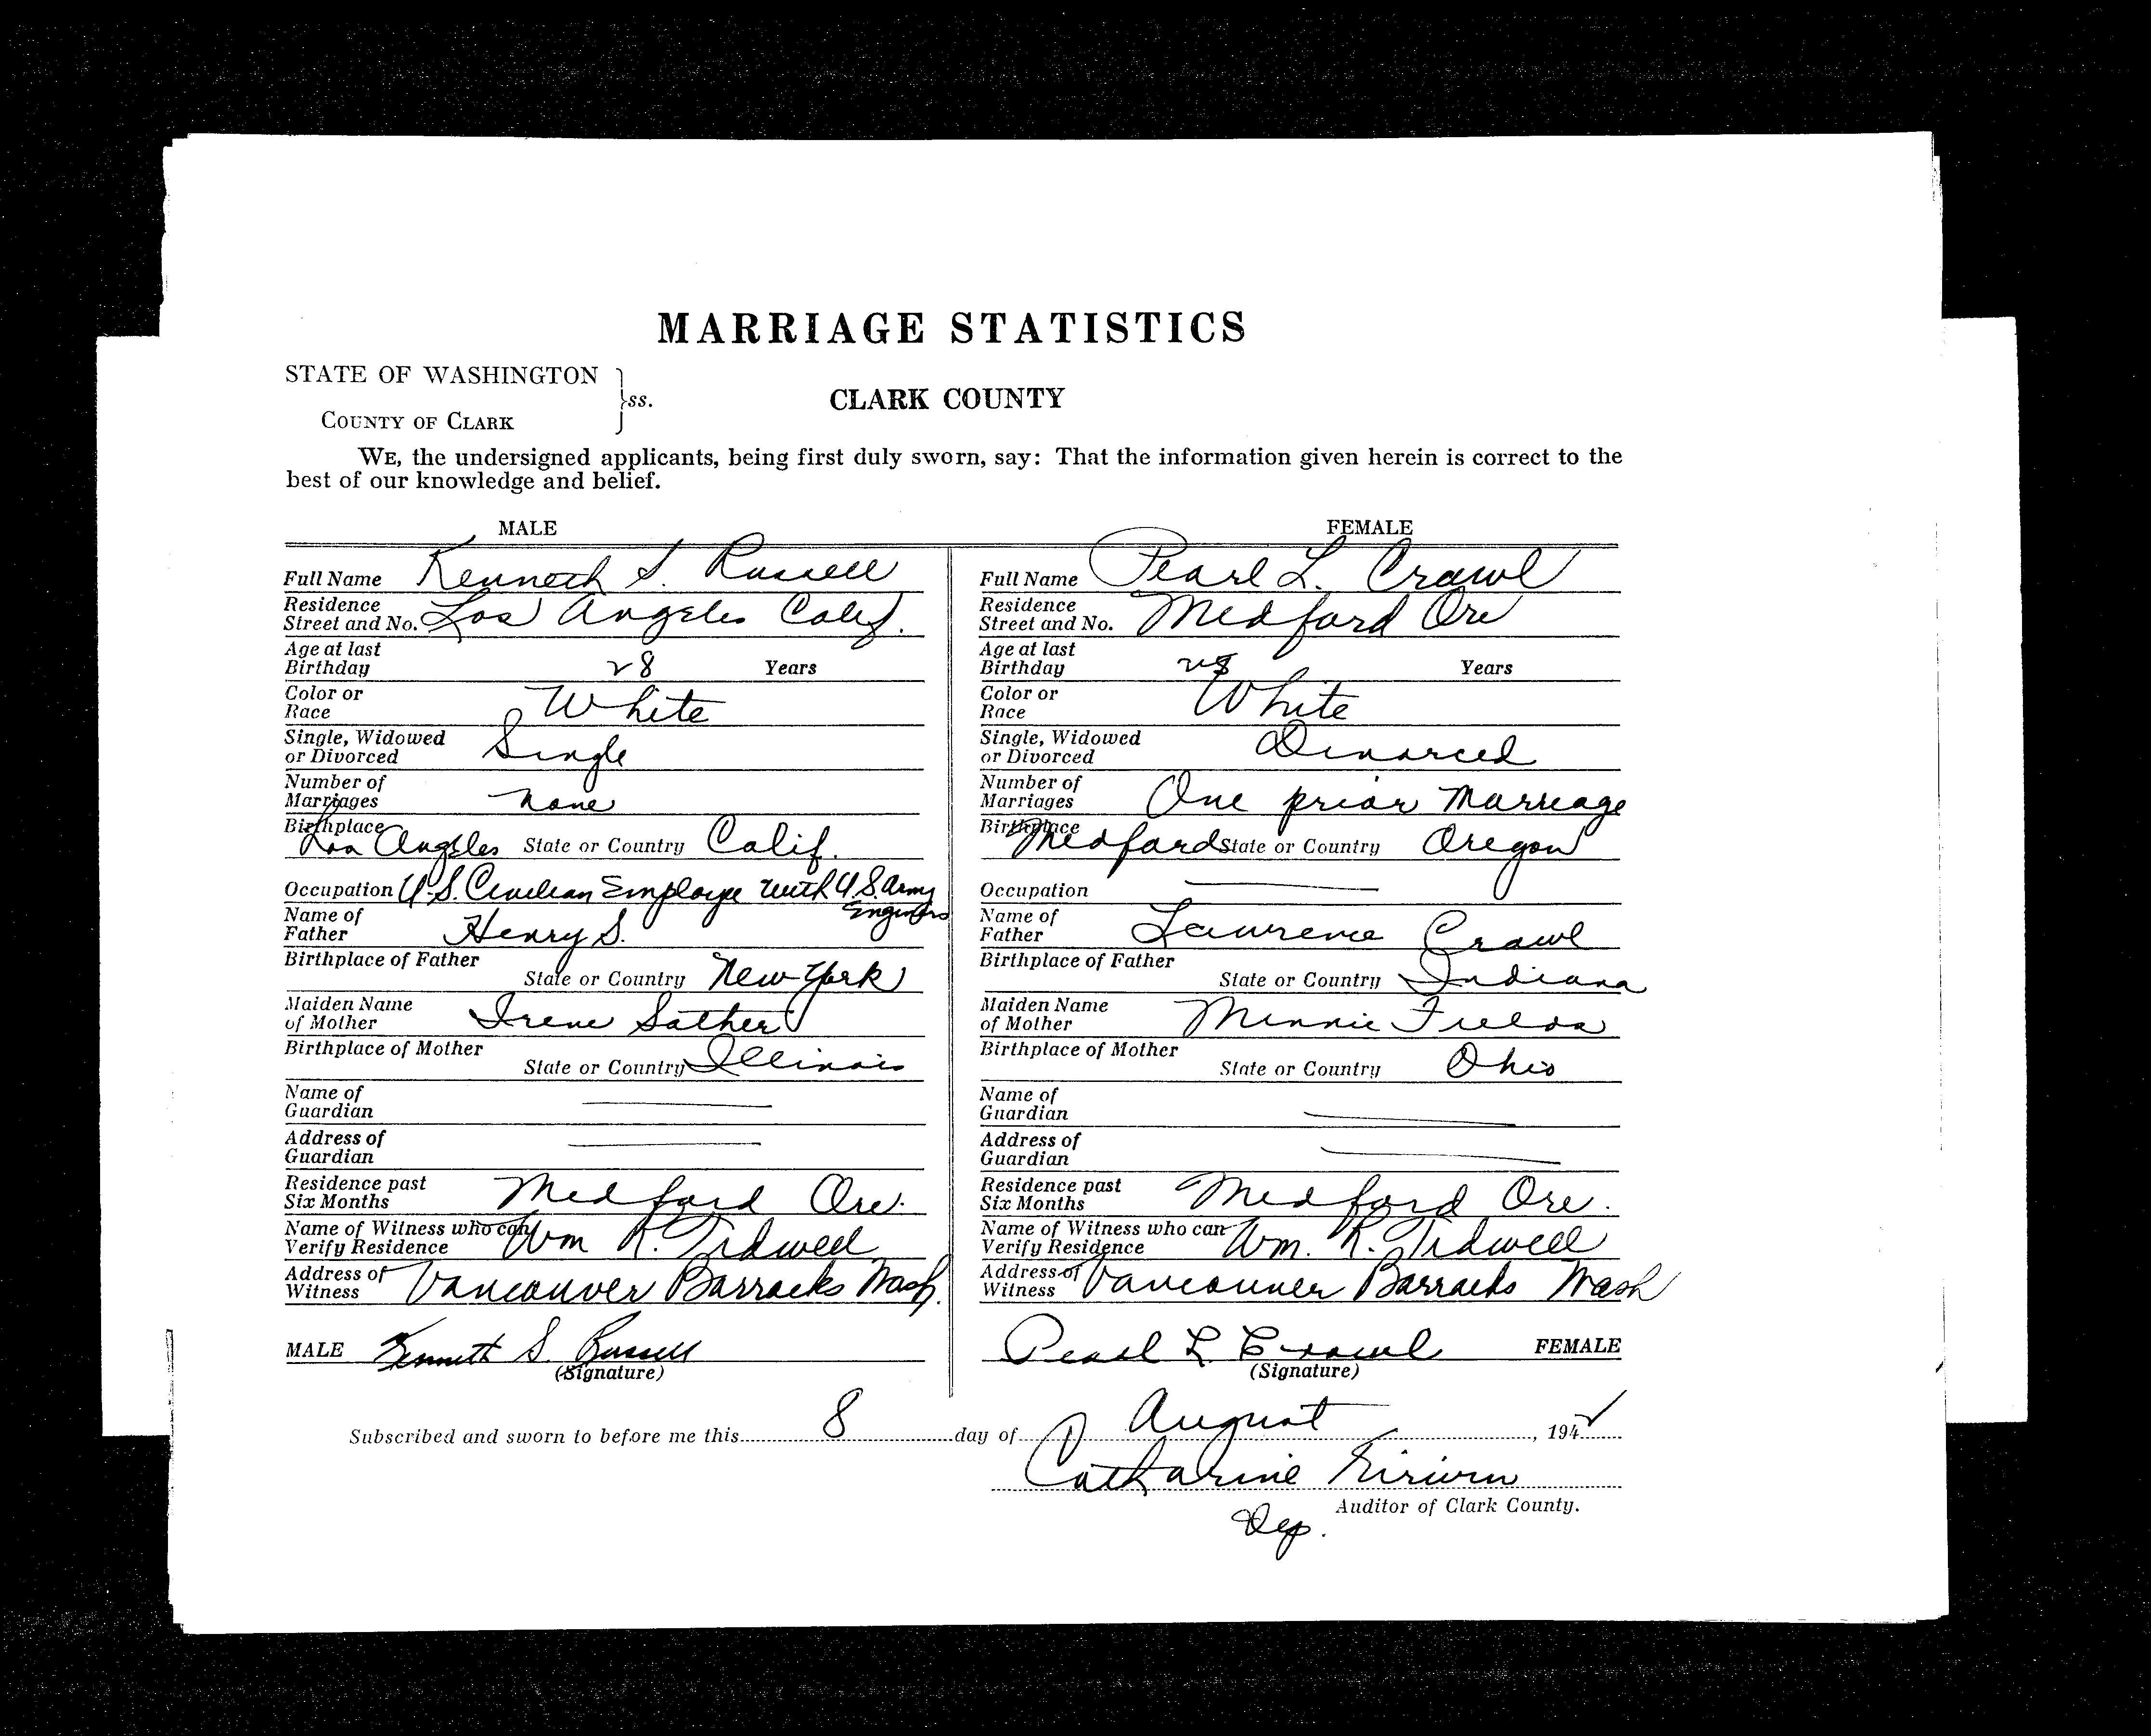 MARRIAGE STATISTICS
STATE OF WASHINGTON
COUNTY OF CLARK
ss.
CLARK COUNTY
WE, the undersigned applicants, being first duly sworn, say: That the information given herein is correct to the
best of our knowledge and belief.
MALE
Full Name Kenneth S. Russell
Residence
Street and No. Los Angeles Calif.
Age at last
Birthday 28 Years
Color or
Race White
Single, Widowed
or Divorced Single
Number of
Marriages none
Birthplace
Los Angeles State or Country Calif.
Occupation U.S. Civilian Employe with U.S. Army
Engineers
Name of
Father Henry S.
Birthplace of Father
State or Country New York
Maiden Name
of Mother Irene Sather
Birthplace of Mother
State or Country Illinois
Name of
Guardian
Address of
Guardian
Residence past
Six Months Medford Ore.
Name of Witness who can
Verify Residence Wm R. Tidwell
Address of
Witness Vancouver Barracks Wash.
MALE Kenneth S. Russell
(Signature)
FEMALE
Full Name Pearl L. Crawl
Residence
Street and No. Medford Ore
Age at last
Birthday 28 Years
Color or
Race White
Single, Widowed
or Divorced Divorced
Number of
Marriages One prior marriage
Birthplace
Medford State or Country Oregon
Occupation
Name of
Father Lawrence Crawl
Birthplace of Father
State or Country Indiana
Maiden Name
of Mother Minnie
Birthplace of Mother
State or Country Ohio
Name of
Guardian
Address of
Guardian
Residence past
Six Months Medford Ore.
Name of Witness who can
Verify Residence Wm. R. Tidwell
Address of
Witness Vancouver Barracks Wash
Pearl L Crawl FEMALE
(Signature)
Subscribed and sworn to before me this 8 day of August, 1942
Catharine
Auditor of Clark County.
Dep.